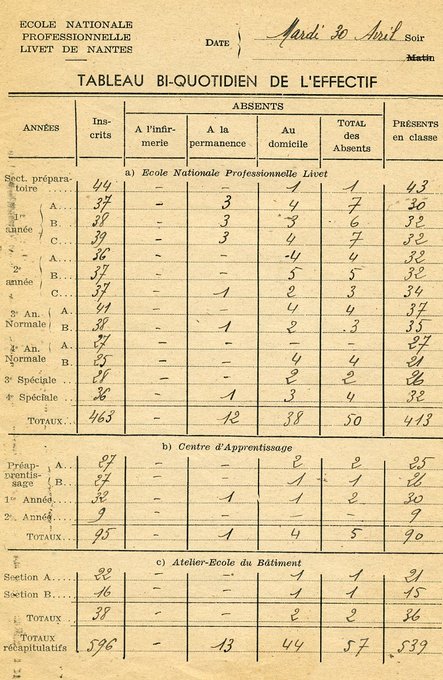 ECOLE NATIONALE
PROFESSIONNELLE
LIVET DE NANTES
DATE Mardi 30 Avril Soir
Matin
TABLEAU BI-QUOTIDIEN DE L'EFFECTIF
ANNÉES Ins-crits ABSENTS PRÉSENTS en classe
A l'infir-merie A la permanence Au domicile TOTAL des Absents
a) Ecole Nationale Professionnelle Livet
Sect. prépara-toire 44 - - 1 1 43
1re année A. 37 - 3 4 7 30
B. 38 - 3 3 6 32
C. 39 - 3 4 7 32
2e année A. 36 - - 4 4 32
B. 37 - - 5 5 32
C. 37 - 1 2 3 34
3e An. Normale A. 41 - - 4 4 37
B. 38 - 1 2 3 35
4e An. Normale A. 27 - - - - 27
B. 25 - - 4 4 21
3e Spéciale 28 - - 2 2 26
4e Spéciale 36 - 1 3 4 32
TOTAUX 463 - 12 38 50 413
b) Centre d'Apprentissage
Préap-prentis-sage A. 27 - - 2 2 25
B. 27 - - 1 1 26
1re Année 32 - 1 1 2 30
2e Année 9 - - - - 9
TOTAUX 95 - 1 4 5 90
c) Atelier-Ecole du Bâtiment
Section A 22 - - 1 1 21
Section B 16 - - 1 1 15
TOTAUX 38 - - 2 2 36
TOTAUX récapitulatifs 596 - 13 44 57 539